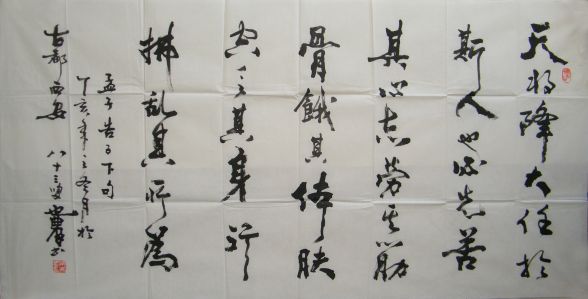 天将降大任于
斯人也必先苦
其心志劳其筋
骨饿其体肤
空乏其身行
拂乱其所为
孟子告子下句
丁亥年之冬月于
古都西安 八十三叟